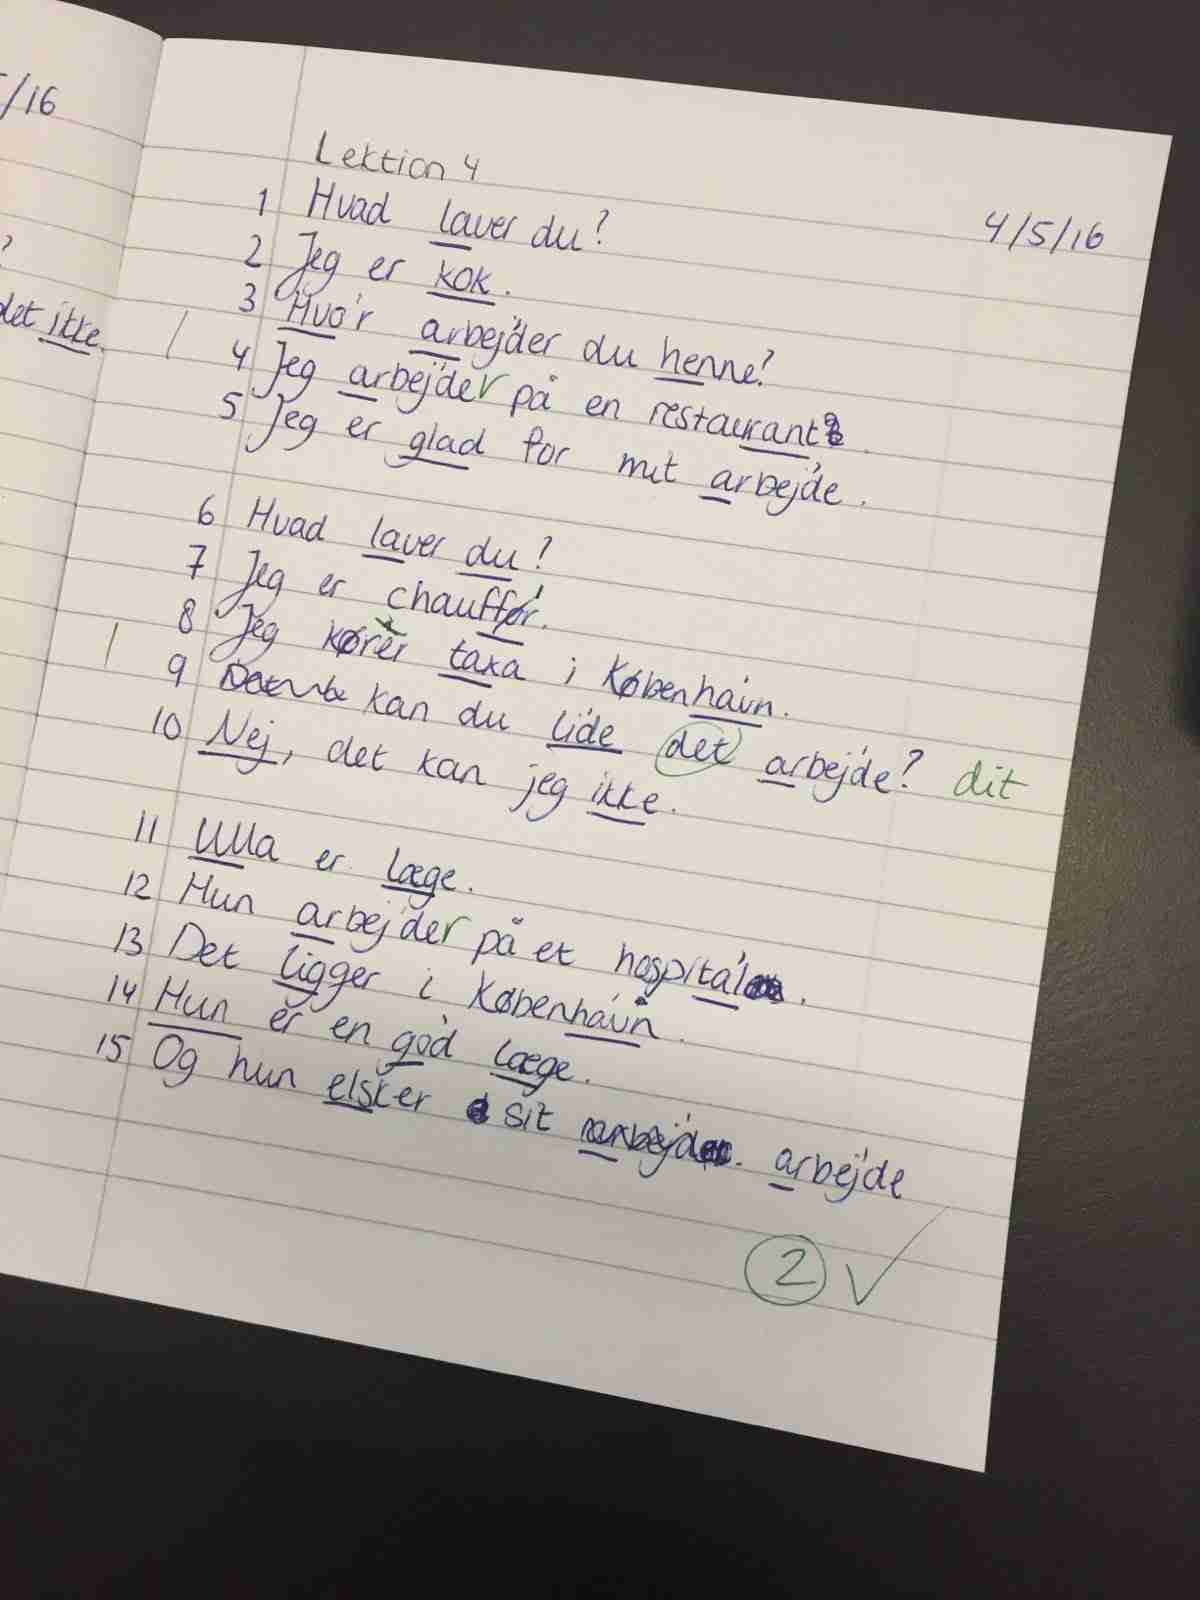 5/16
?
det ikke.
Lektion 4
4/5/16
1 Hvad laver du?
2 Jeg er kok.
3 Hvo'r arbej'der du henne?
4 Jeg arbej'der på en restaurant.
5 Jeg er glad for mit arbej'de.
6 Hvad laver du?
7 Jeg er chauffø'r.
8 Jeg kører taxa i Københa'vn.
9 kan du li'de det arbej'de? dit
10 Nej, det kan jeg ikke.
11 Ulla er læge.
12 Hun arbej'der på et hospita'l.
13 Det ligger i Københa'vn.
14 Hun er en go'd læge.
15 Og hun elsker sit arbej'de
2